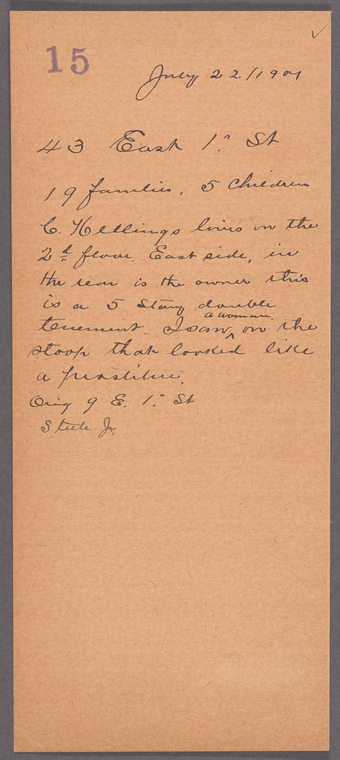 15
July 22/1901
43 East 1st St
19 families. 5 Children
C. Hellings lives on the
2d floor. East side, in
the rear is the owner this
is a 5 story double
tenement. I saw a woman on the
stoop that looked like
a prostitute.
Orig 9 E. 1st St
Steele Jr.